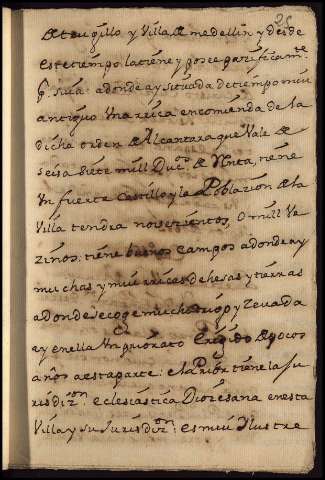 de trugillo y Villa de medellin y desde
este tiempo la tiene y posee pacificamte
por suia: a donde ay situada de tiempo mui
antiguo Una rica encomienda de la
dicha orden de Alcantara que Vale de
seis a siete mill Ducos de Renta, tiene
Un fuerte Castillo y la Poblazion de la
Villa tendra novezientos, o mill Ve
zinos: tiene buenos campos a donde ay
muchas y mui ricas dehesas y tierras
a donde se coge mucho trigo y zevada
ay en ella Un priorato Erigido de pocos
años a esta parte: el a Prior tiene la Ju
risdizon eclesiástica Diozesana en esta
Villa y su Jurisdizon: es mui Ilustre